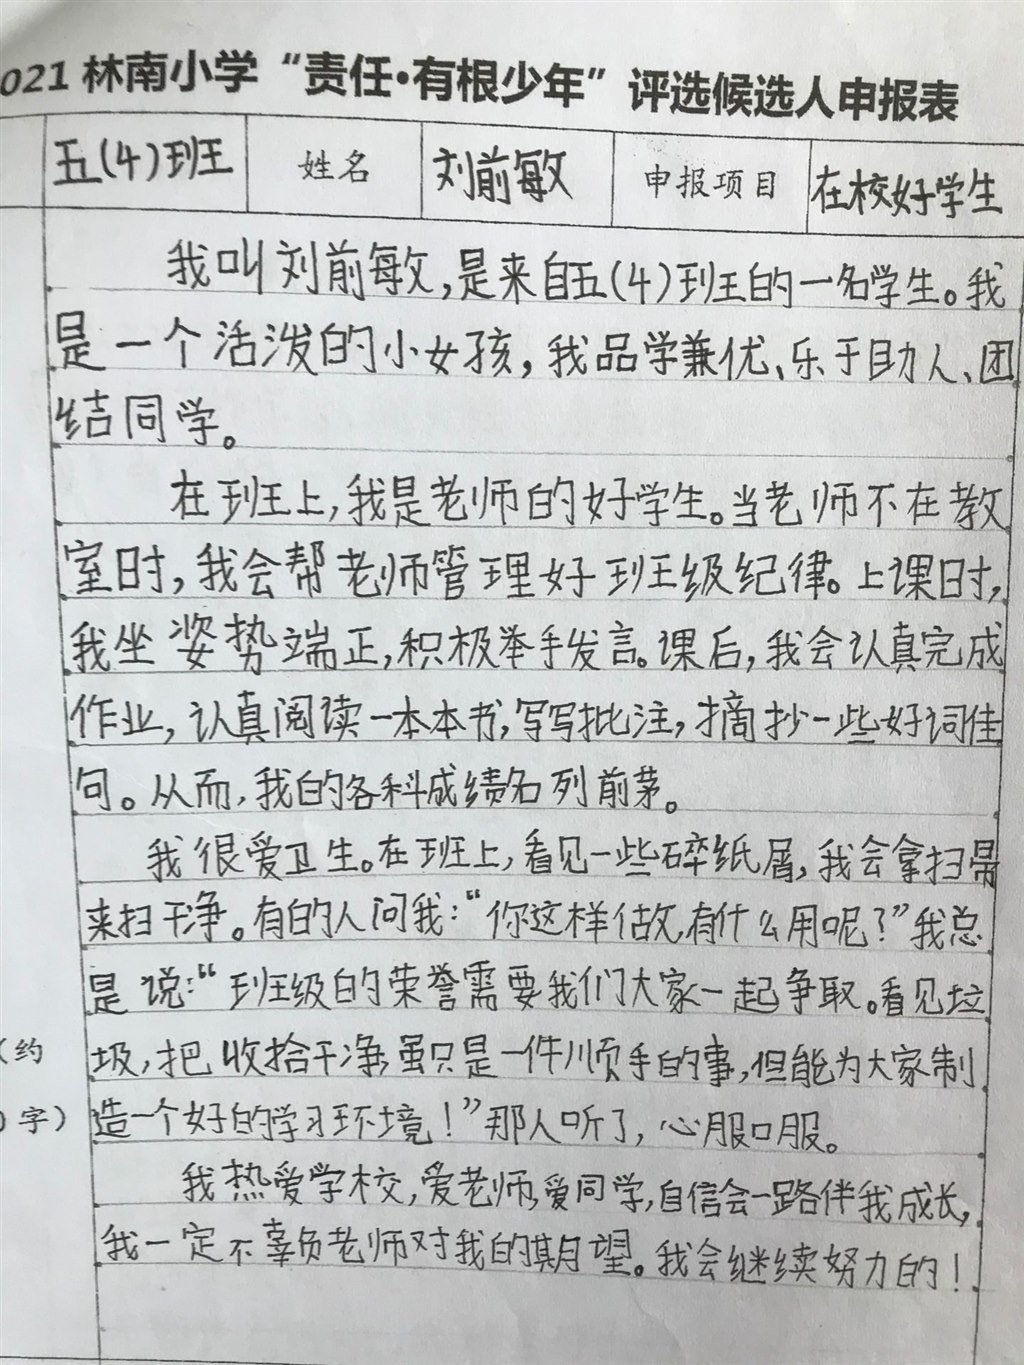 021林南小学“责任·有根少年”评选候选人申报表
五(4)班 姓名 刘前敏 申报项目 在校好学生
我叫刘前敏,是来自五(4)班的一名学生。我
是一个活泼的小女孩,我品学兼优、乐于助人、团
结同学。
在班上,我是老师的好学生。当老师不在教
室时,我会帮老师管理好班级纪律。上课时,
我坐姿势端正,积极举手发言。课后,我会认真完成
作业,认真阅读一本本书,写写批注,摘抄一些好词佳
句。从而,我的各科成绩名列前茅。
我很爱卫生。在班上,看见一些碎纸屑,我会拿扫帚
来扫干净。有的人问我:“你这样做,有什么用呢?”我总
是说:“班级的荣誉需要我们大家一起争取。看见垃
(约
圾,把收拾干净,虽只是一件顺手的事,但能为大家制
)字)
造一个好的学习环境!”那人听了,心服口服。
我热爱学校,爱老师,爱同学,自信会一路伴我成长,
我一定不辜负老师对我的期望。我会继续努力的!